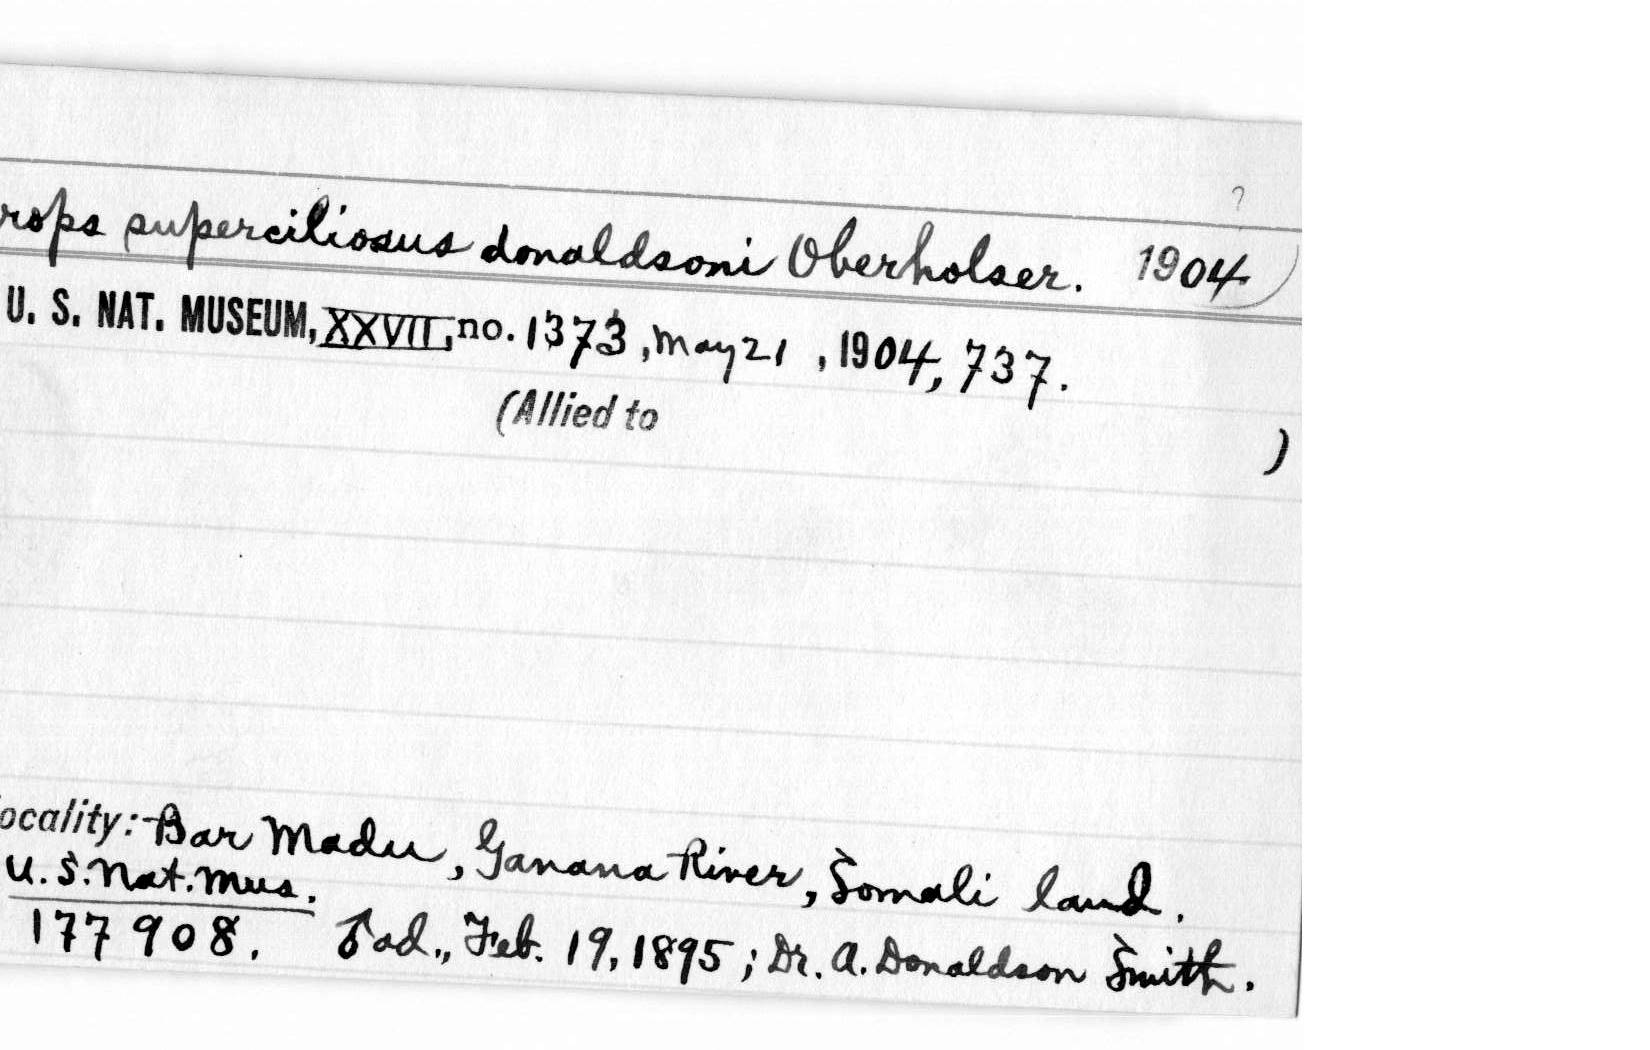 ?
rops superciliosus donaldsoni Oberholser. 1904)
U. S. NAT. MUSEUM, XXVII, no. 1373, May 21, 1904, 737.
(Allied to )
ocality:- Bar Madu, Ganana River, Somali land.
U.S. Nat. Mus.
177908. ♂ ad., Feb. 19, 1895; Dr. A. Donaldson Smith.